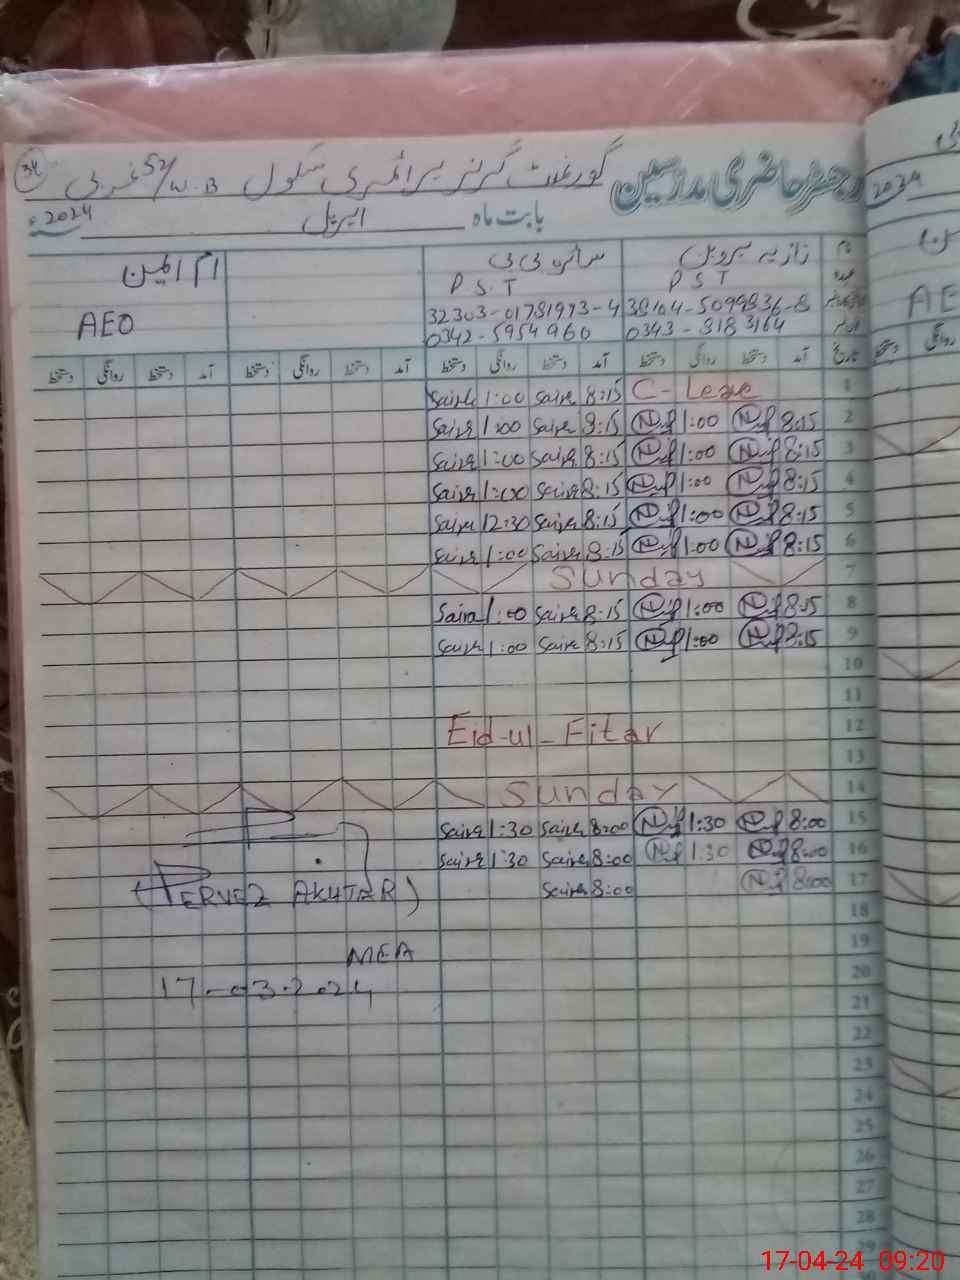 رجسٹر حاضری مدرسین گورنمنٹ گرلز پرائمری سکول 52/W.B غربی 34
بابت ماہ اپریل 2024ء
نام نازیہ پروین سائرہ بی بی ام المین
عہدہ P S T P S. T AEO
38104-5099836-8 32303-01781973-4
0343-3183164 0342-5954960
تاریخ آمد دستخط روانگی دستخط آمد دستخط روانگی دستخط آمد دستخط روانگی دستخط آمد دستخط روانگی دستخط
1 C- Leave 8:15 Saira 1:00 Saira
2 8:15 1:00 8:15 Saira 1:00 Saira
3 8:15 1:00 8:15 Saira 1:00 Saira
4 8:15 1:00 8:15 Saira 1:00 Saira
5 8:15 1:00 8:15 Saira 12:30 Saira
6 8:15 1:00 8:15 Saira 1:00 Saira
7 Sunday
8 8:15 1:00 8:15 Saira 1:00 Saira
9 8:15 1:00 8:15 Saira 1:00 Saira
10
11
12 Eid-ul-Fitar
13
14 Sunday
15 8:00 1:30 8:00 Saira 1:30 Saira
16 8:00 1:30 8:00 Saira 1:30 Saira
17 8:00 8:00 Saira
(PERVEZ AKHTAR)
18
19
MEA
20
17-03-2024
21
22
23
24
25
26
27
28
29
2024
AE
روانگی
17-04-24 09:20